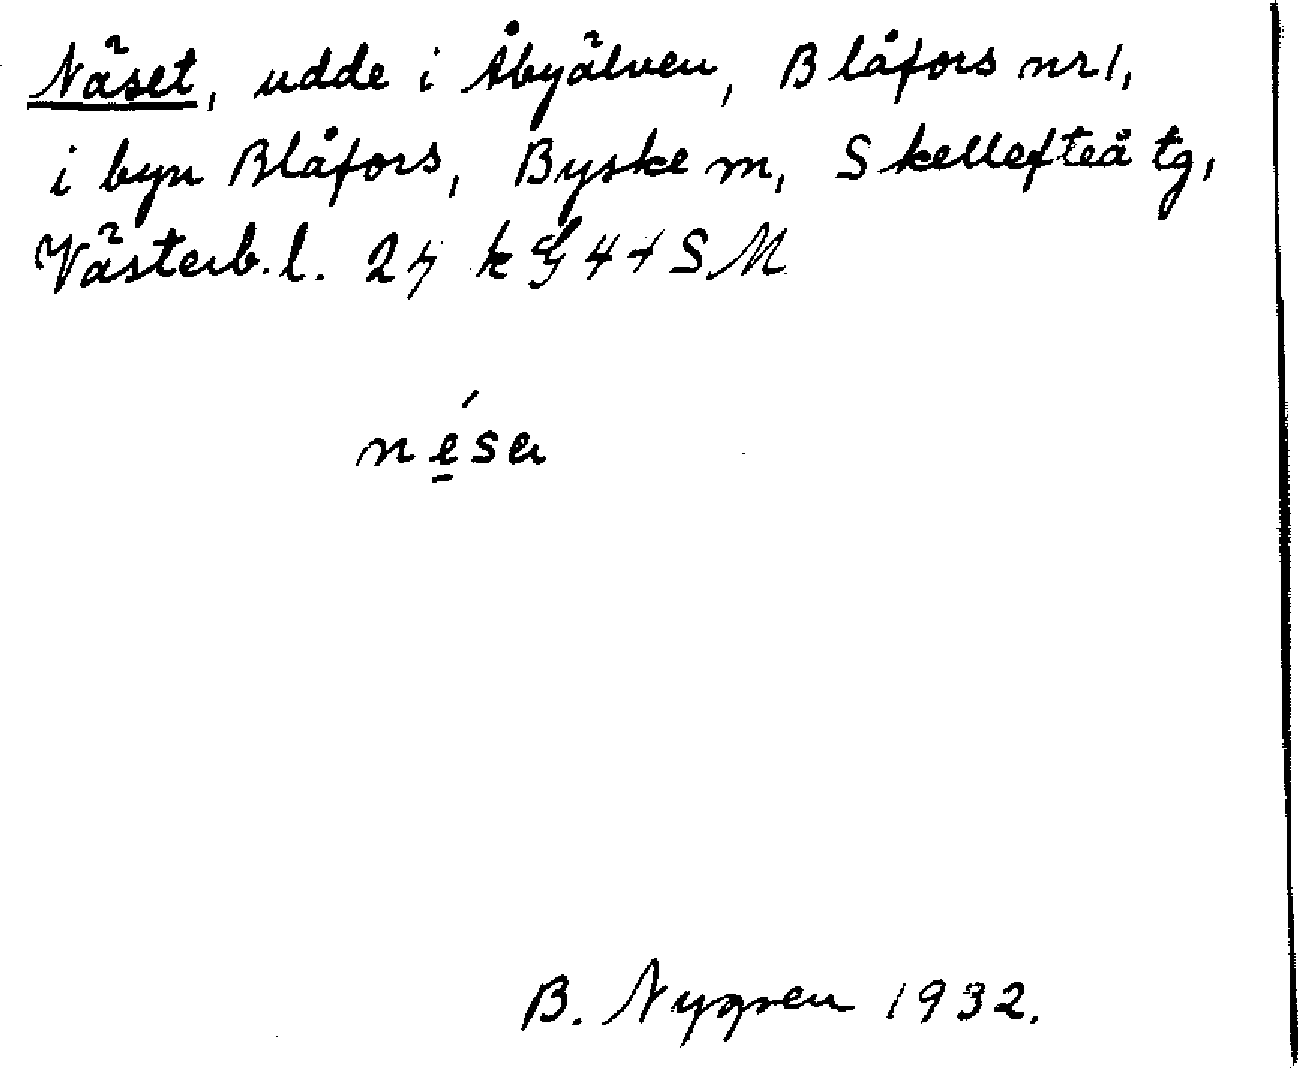 Näset, udde i Åbyälven, Blåfors nr 1,
i byn Blåfors, Byske m, Skellefteå tg,
Västerb.l.
nésa
B. Nygren 1932.